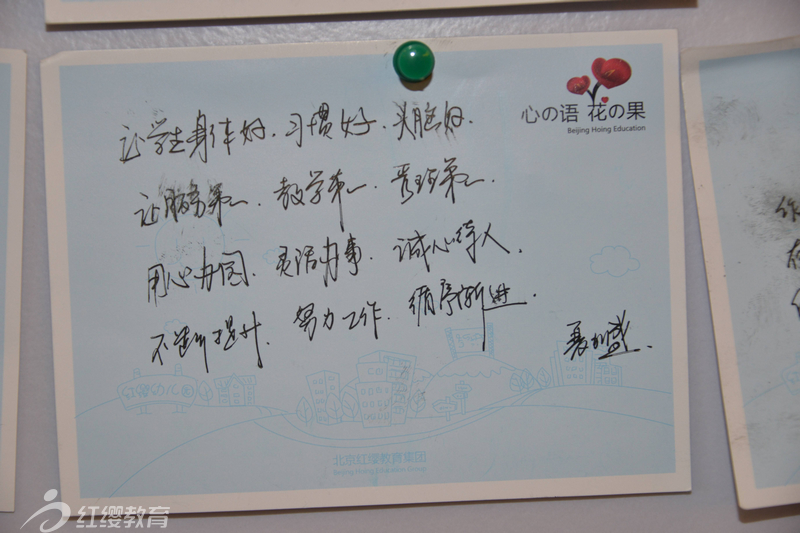 心の语 花の果
Beijing Hoing Education
让学生身体好、习惯好、头脑好.
让服务第一、教学第一、管理第一.
用心办园、灵活办事、诚心待人.
不断提升、努力工作、循序渐进.
红缨幼儿园
北京红缨教育集团
Beijing Hoing Education Group
红缨教育